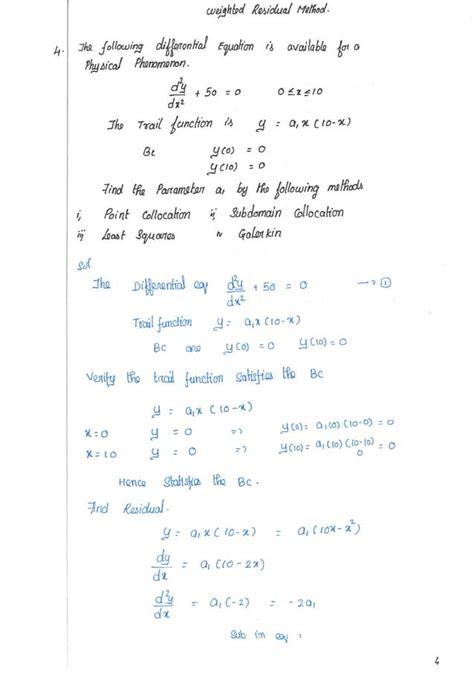 Weighted Residual Method.
4. The following differential Equation is available for a
Physical Phenomenon.
d²y/dx² + 50 = 0 0≤x≤10
The Trail function is y = a₁x(10-x)
Bc y(0) = 0
y(10) = 0
Find the Parameter a₁ by the following methods
i, Point Collocation ii, Subdomain Collocation
iii Least Squares iv Galerkin
Sol
The Differential eq d²y/dx² + 50 = 0 → ①
Trail function y = a₁x(10-x)
Bc are y(0) = 0 y(10) = 0
Verify the trail function Satisfies the Bc
y = a₁x(10-x)
x=0 y = 0 => y(0) = a₁(0)(10-0) = 0
x=10 y = 0 => y(10) = a₁(10)(10-10) = 0
0
Hence Statisfies the Bc.
Find Residual.
y = a₁x(10-x) = a₁(10x-x²)
dy/dx = a₁(10-2x)
d²y/dx = a₁(-2) = -2a₁
Sub in eq 1
4